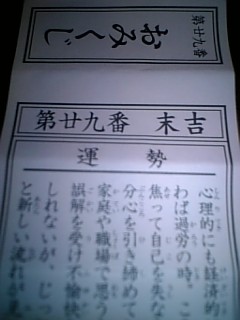 第廿九番
おみくじ
第廿九番　末吉
運勢
心理的にも経済的
わば過労の時。こ
焦って自己を失な
分心を引き締めて
家庭や職場で思う
誤解を受け不愉快
しれないが、じっ
と新しい流れが